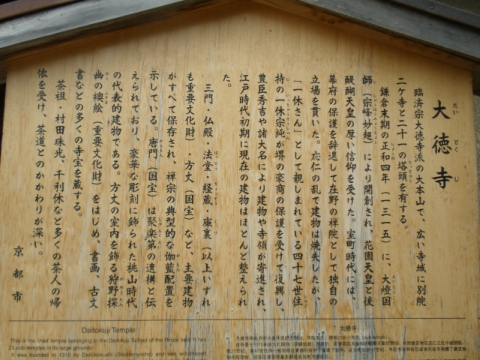 大徳寺
だい とく じ
臨済宗大徳寺派の大本山で、広い寺域に別院
二ヶ寺と二十一の塔頭を有する。
鎌倉末期の正和四年(一三一五)に、大燈国
師(宗峰妙超)により開創され、花園天皇と後
醍醐天皇の厚い信仰を受けた。室町時代には、
幕府の保護を辞退して在野の禅院として独自の
立場を貫いた。応仁の乱で建物は焼失したが、
「一休さん」として親しまれている四十七世住
持の一休宗純が堺の豪商の保護を受けて復興し、
豊臣秀吉や諸大名により建物や寺領が寄進され、
江戸時代初期に現在の建物はほとんど整えられ
た。
三門・仏殿・法堂・経蔵・庫裏(以上いずれ
も重要文化財)・方丈(国宝)など、主要建物
がすべて保存され、禅宗の典型的な伽藍配置を
示している。唐門(国宝)は聚楽第の遺構と伝
えられており、豪華な彫刻に飾られた桃山時代
の代表的建物である。方丈の室内を飾る狩野探
幽の襖絵(重要文化財)をはじめ、書画、古文
書などの多くの寺宝を蔵する。
茶祖・村田珠光、千利休など多くの茶人の帰
依を受け、茶道とのかかわりが深い。
京都市
Daitokuji Temple